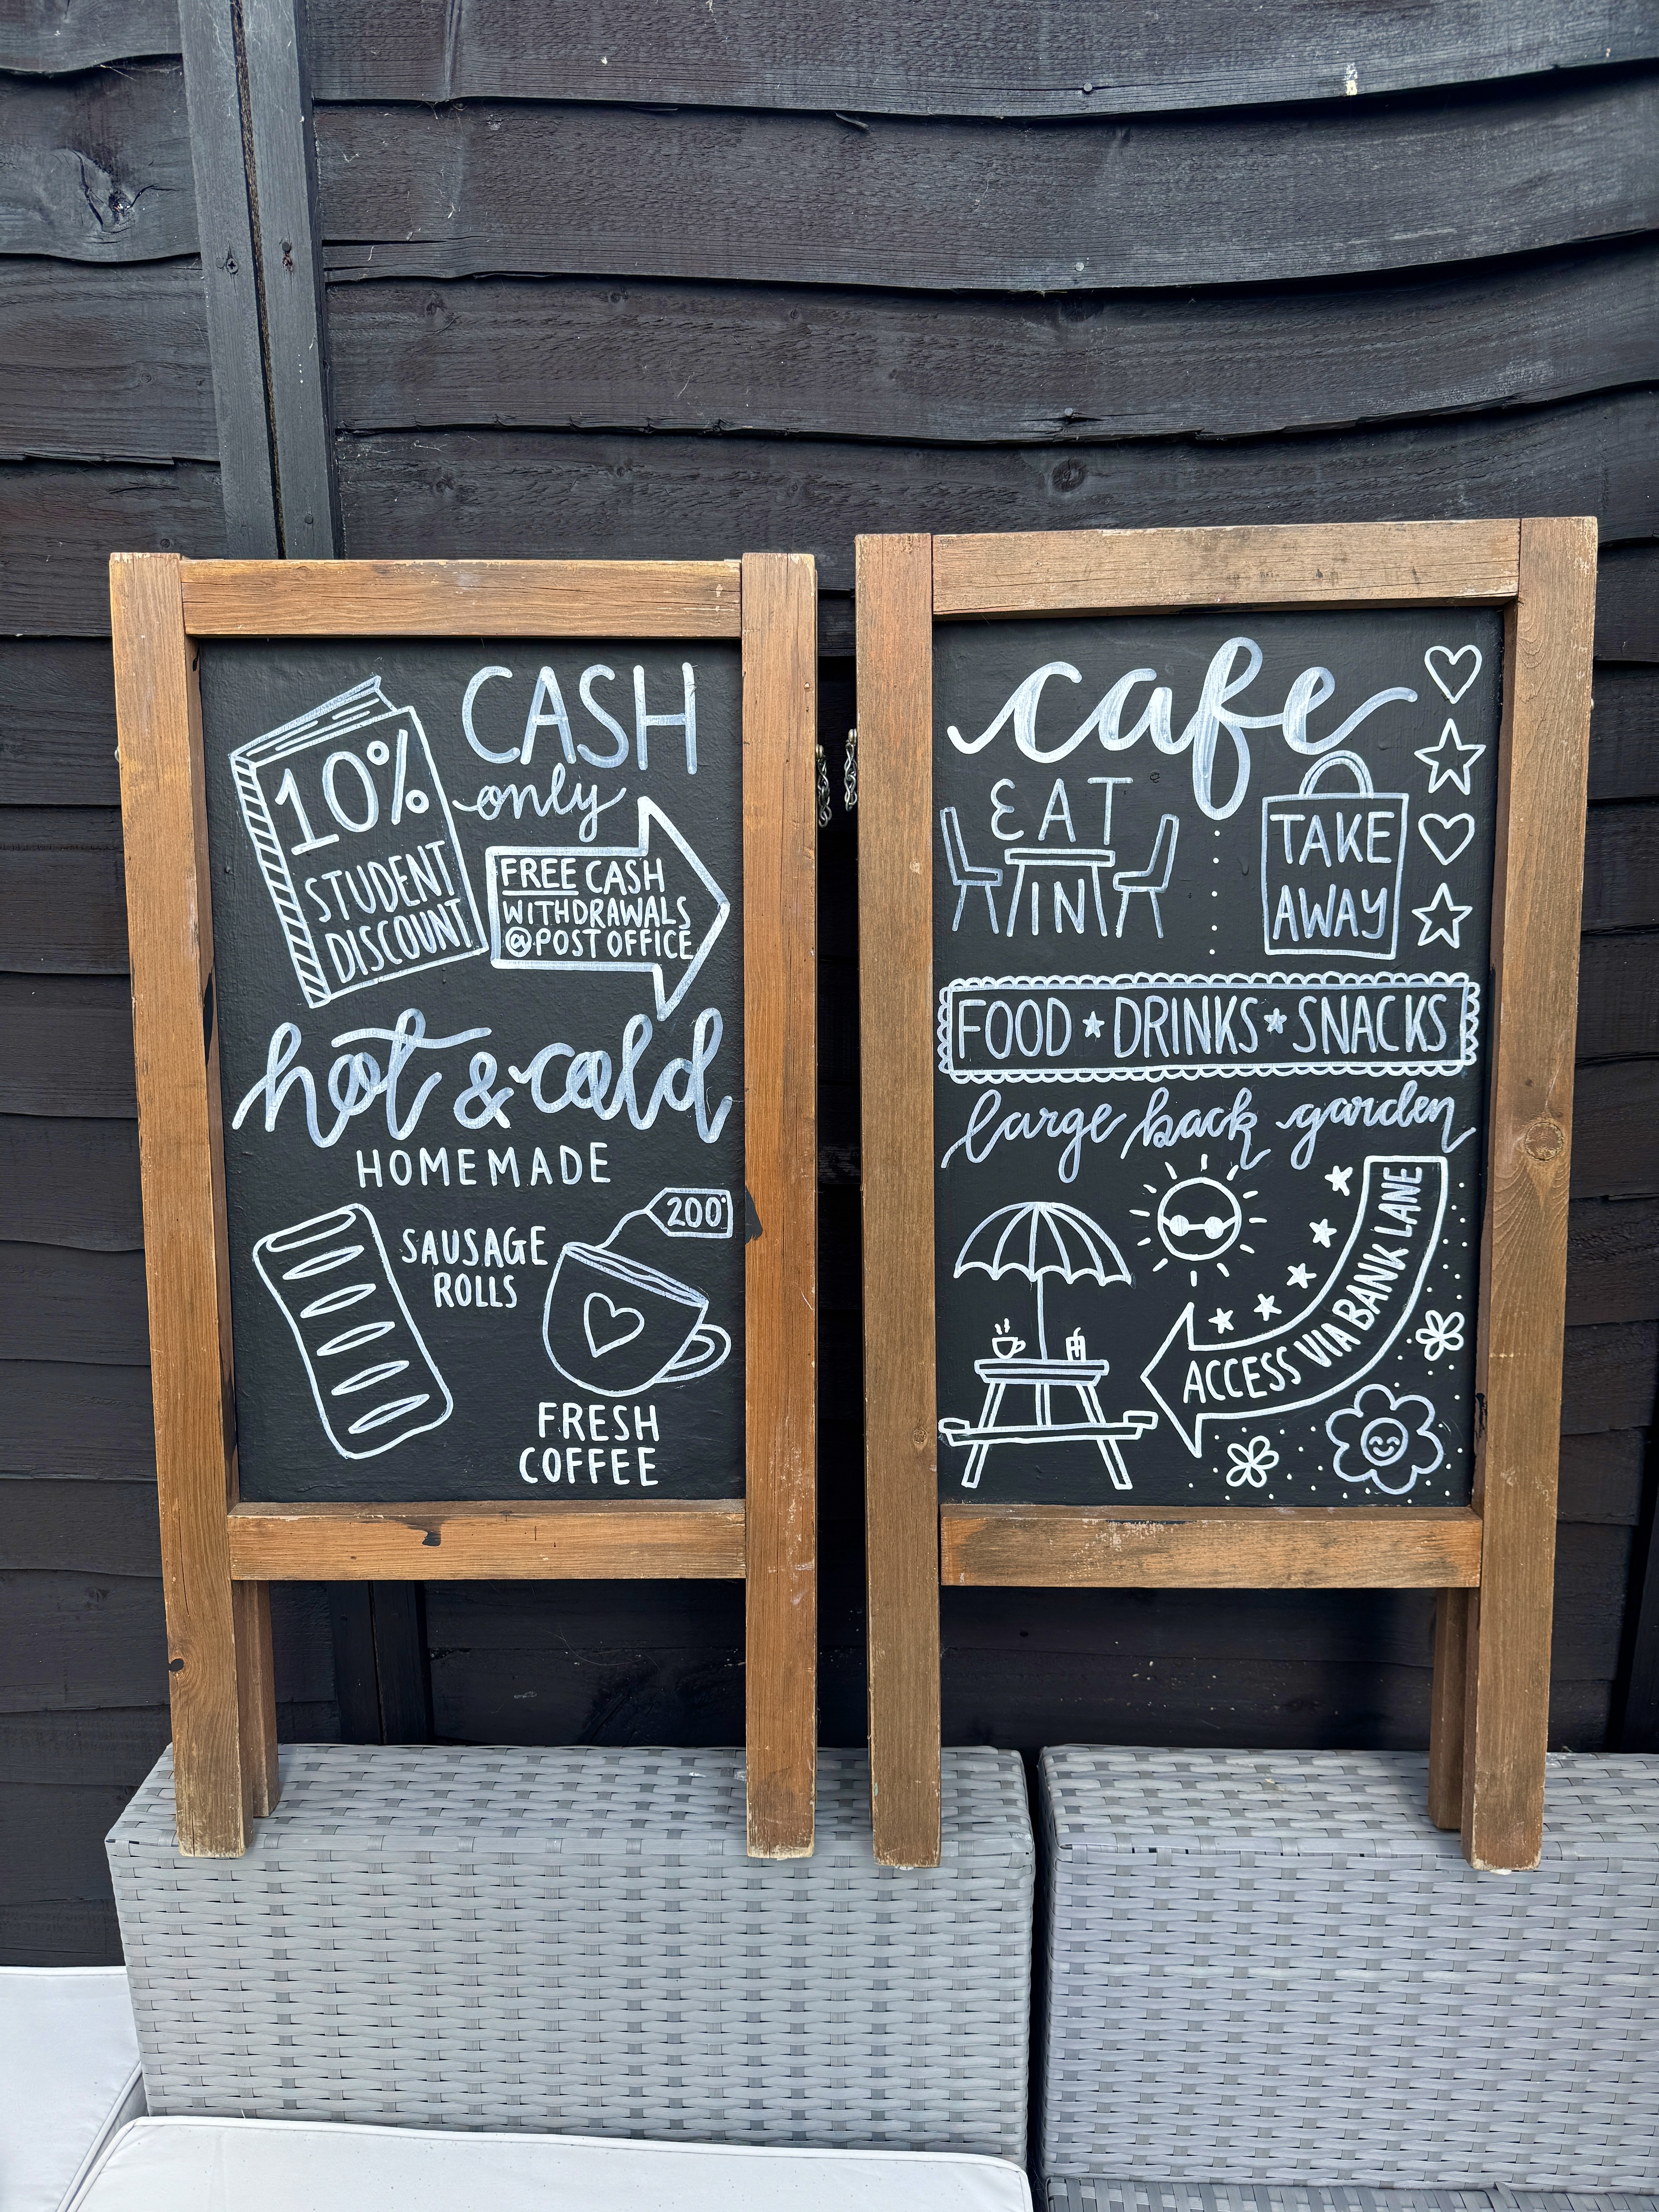 10%
STUDENT
DISCOUNT
CASH
only
FREE CASH
WITHDRAWALS
@ POST OFFICE
hot & cold
HOMEMADE
SAUSAGE
ROLLS
200°
FRESH
COFFEE
cafe
EAT
IN
TAKE
AWAY
FOOD ★ DRINKS ★ SNACKS
large back garden
ACCESS VIA BANK LANE